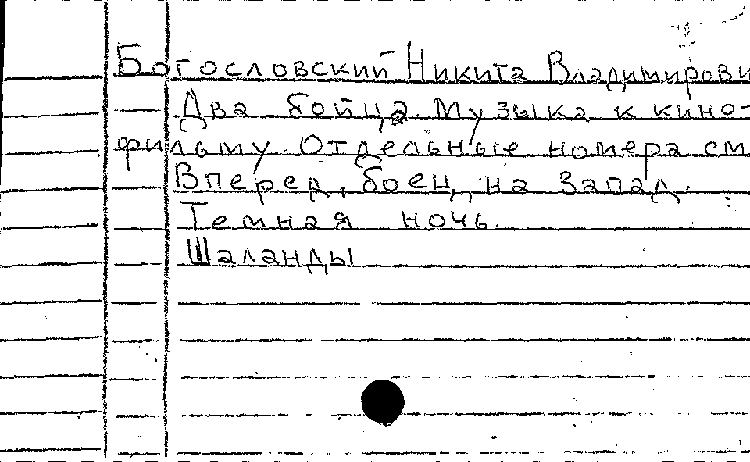 Богословский Никита Владимирови
Два бойца. Музыка к кино-
фильму. Отдельные номера см
Вперед, боец, на запад.
Темная ночь
Шаланды